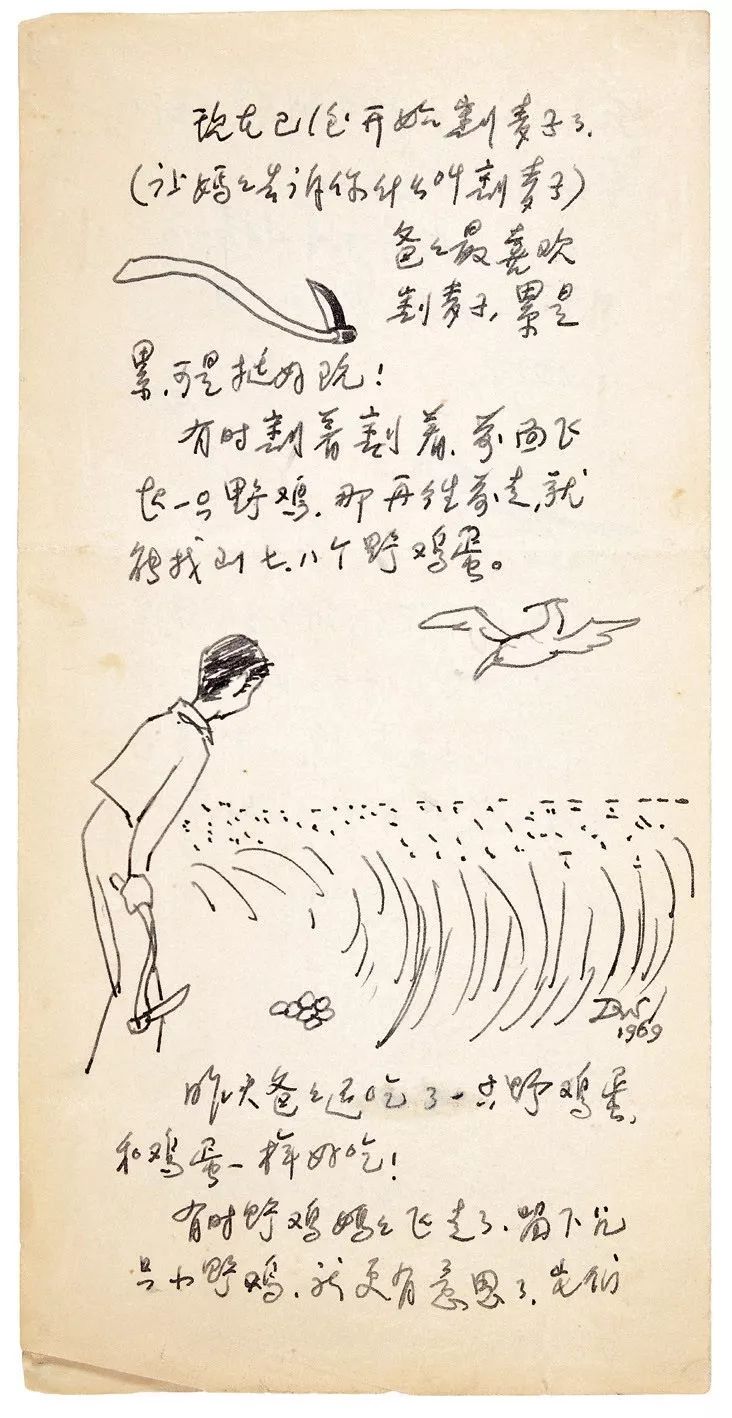 现在已经开始割麦子了.
(让妈々告诉你什么叫割麦子)
爸々最喜欢
割麦子,累是
累,可是挺好玩!
有时割着割着,前面飞
起一只野鸡,那再往前走,就
能找到七、八个野鸡蛋。
1969
昨天爸々还吃了一只野鸡蛋,
和鸡蛋一样好吃!
有时野鸡妈々飞走了,留下几
只小野鸡,就更有意思了,它们